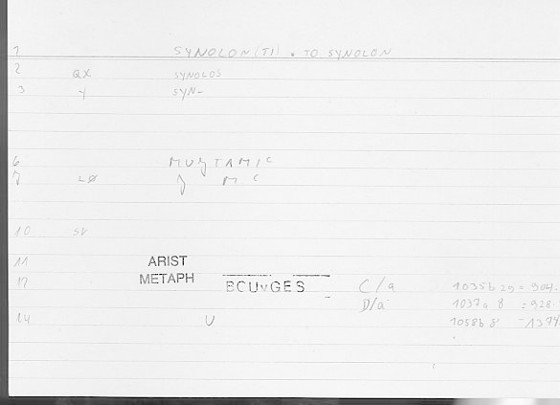 1 SYNOLON(TI) . TO SYNOLON
2 QX SYNOLOS
3 Y SYN-
6 MUGTAMIC
7 LØ J M C
10 SV
11 ARIST
METAPH
12 BCUvGES C/a 1035b 29 = 904.
D/a 1037a 8 = 928
14 U 1058b 8 - 1374